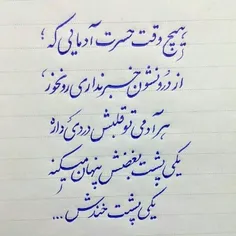 هیچ وقت حسرت آدمایی که ؛
از درونشون خبر نداری رو نخور ،
هر آدمی تو قلبش دردی داره
یکی پشت بغضش پنهان میکنه
یکی پشت خندش ...